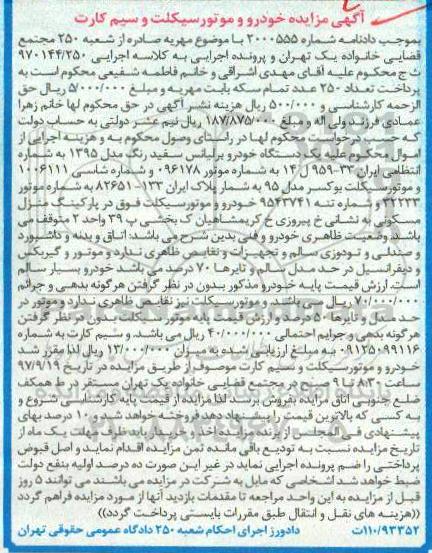 آگهی مزایده خودرو و موتورسیکلت و سیم کارت
بموجب دادنامه شماره ۲۰۰۰۵۵۵ با موضوع مهریه صادره از شعبه ۲۵۰ مجتمع
قضایی خانواده یک تهران و پرونده اجرایی به کلاسه اجرایی ۹۷۰۱۴۴/۲۵۰
ث ج محکوم علیه آقای مهدی اشراقی و خانم فاطمه شفیعی محکوم است به
پرداخت تعداد ۲۵۰ عدد تمام سکه بابت مهریه و مبلغ ۵/۰۰۰/۰۰۰ ریال حق
الزحمه کارشناسی و ۵۰۰/۰۰۰ ریال هزینه نشر آگهی در حق محکوم لها خانم زهرا
عمادی فرزند ولی اله و مبلغ ۱۸۷/۸۷۵/۰۰۰ ریال نیم عشر دولتی به حساب دولت
که حسب درخواست محکوم لها در راستای وصول محکوم به و هزینه اجرایی از
اموال محکوم علیه یک دستگاه خودرو برلیانس سفید رنگ مدل ۱۳۹۵ به شماره
انتظامی ایران ۳۳-۹۵۹ ل ۱۴ به شماره موتور ۰۹۶۱۷۸ و شماره شاسی ۱۰۰۶۱۱۱
و موتورسیکلت بوکسر مدل ۹۵ به شمار پلاک ایران ۱۳۳-۸۲۶۵۱ به شماره موتور
۳۲۲۳۳ و شماره تنه ۹۵۴۳۷۴۱ خودرو و موتورسیکلت فوق در پارکینگ منزل
مسکونی به نشانی خ پیروزی خ کریمشاهیان ک بخشی پ ۳۹ واحد ۲ متوقف می
باشد وضعیت ظاهری خودرو و فنی بدین شرح می باشد: اتاق و بدنه و داشبورد
و صندلی و تودوزی سالم و تجهیزات و نقایص ظاهری ندارد و موتور و گیربکس
و دیفرانسیل در حد مدل سالم و تایرها ۷۰ درصد می باشد خودرو بسیار سالم
است. ارزش قیمت پایه خودرو مذکور بدون در نظر گرفتن هر گونه بدهی و جرائم
۷۰/۰۰۰/۰۰۰ ریال می باشد. و موتورسیکلت نیز نقایص ظاهری ندارد و موتور در
حد مدل و تایرها ۵۰ درصد و ارزش قیمت پایه موتورسیکلت بدون در نظر گرفتن
هر گونه بدهی و جرایم احتمالی ۴۰/۰۰۰/۰۰۰ ریال می باشد. و سیم کارت به شماره
۰۹۱۲۵۰۹۹۱۱۶ به مبلغ ارزیابی شده به میزان ۱۳/۰۰۰/۰۰۰ ریال لذا مقرر شد
خودرو و موتورسیکلت و سیم کارت موصوف از طریق مزایده در تاریخ ۹۷/۹/۱۹
ساعت ۸:۳۰ تا ۹ صبح در مجتمع قضایی خانواده یک تهران مستقر در ط همکف
ضلع جنوبی اتاق مزایده بفروش برسد لذا مزایده از قیمت پایه کارشناسی شروع و
به کسی که بالاترین قیمت را پیشنهاد دهد فروخته خواهد شد و ۱۰ درصد بهای
پیشنهادی فی المجلس از برنده مزایده اخذ و خریدار باید ظرف مهلت یک ماه از
تاریخ مزایده نسبت به تودیع باقی مانده ثمن مزایده اقدام نماید و اصل قبوض
پرداختی را ضم پرونده اجرایی نماید در غیر این صورت ده درصد اولیه بنفع دولت
ضبط خواهد شد اشخاصی که مایل به شرکت در مزایده می باشند می توانند ۵ روز
قبل از مزایده به این واحد مراجعه تا مقدمات بازدید آنها از مورد مزایده فراهم گردد
((هزینه های نقل و انتقال طبق مقررات بایستی پرداخت گردد))
۱۱۰/۹۳۳۵۲ت دادورز اجرای احکام شعبه ۲۵۰ دادگاه عمومی حقوقی تهران